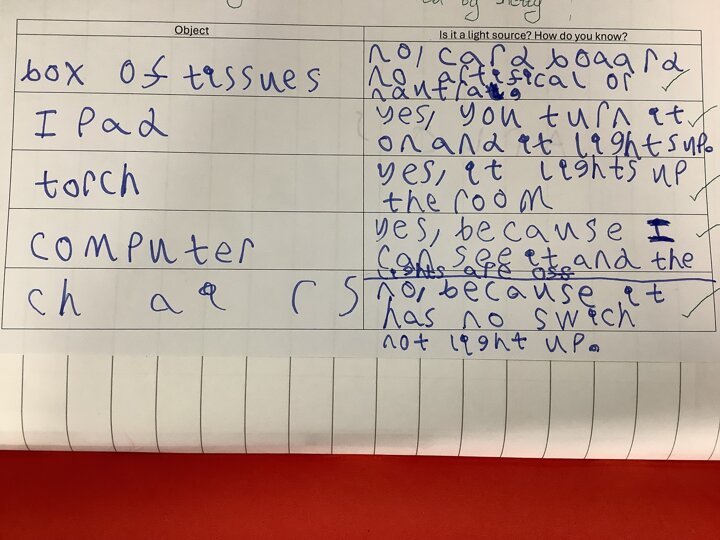 ed by
Object
Is it a light source? How do you know?
box of tissues
no, card boaard
no artifical or
I Pad
yes, you turn it
on and it lights up.
torch
yes, it lights up
the room
computer
yes, because I
can see it and the
lights are off
ch ai rs
no, because it
has no swich
not light up.